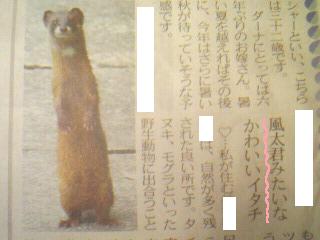 シャーといい、こちら
は三十二歳です。
ダーナにとっては六
年ぶりのお嫁さん。暑
い夏を越えればその後
に、今年はさらに暑い
秋が待っていそうな予
感です。
風太君みたいな
かわいいイタチ
♡…私が住む
は、自然が多く残
された良い所です。タ
ヌキ、モグラといった
野生動物に出合うこと